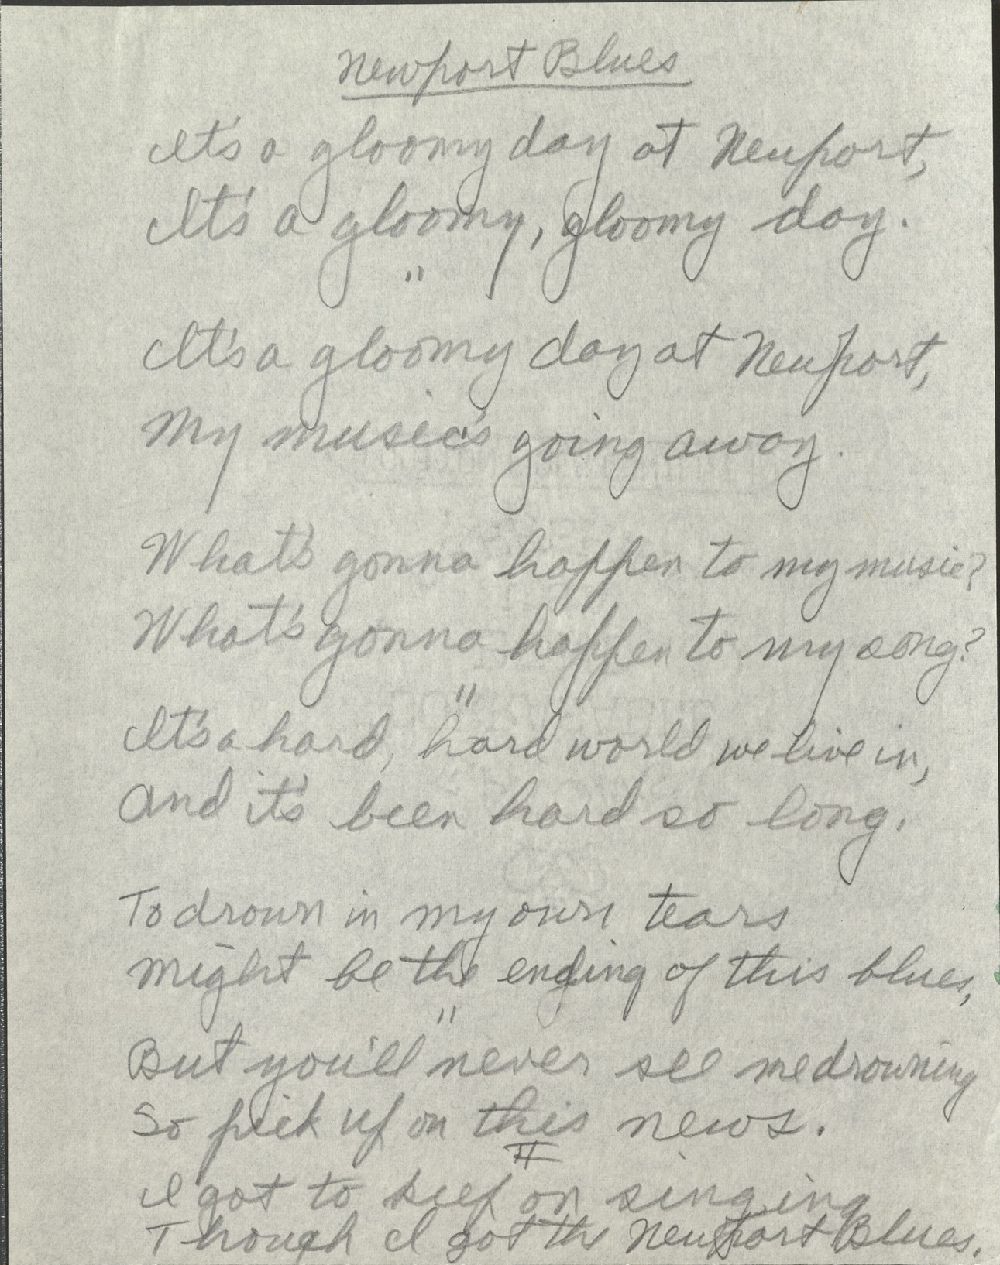 Newport Blues
It's a gloomy day at Newport,
It's a gloomy, gloomy day.
"
It's a gloomy day at Newport,
My music's going away.
What's gonna happen to my music?
What's gonna happen to my song?
"
It's a hard, hard world we live in,
And it's been hard so long.
To drown in my own tears
Might be the ending of this blues,
"
But you'll never see me drowning
So pick up on this news.
I got to keep on singing
Though I got the Newport Blues.